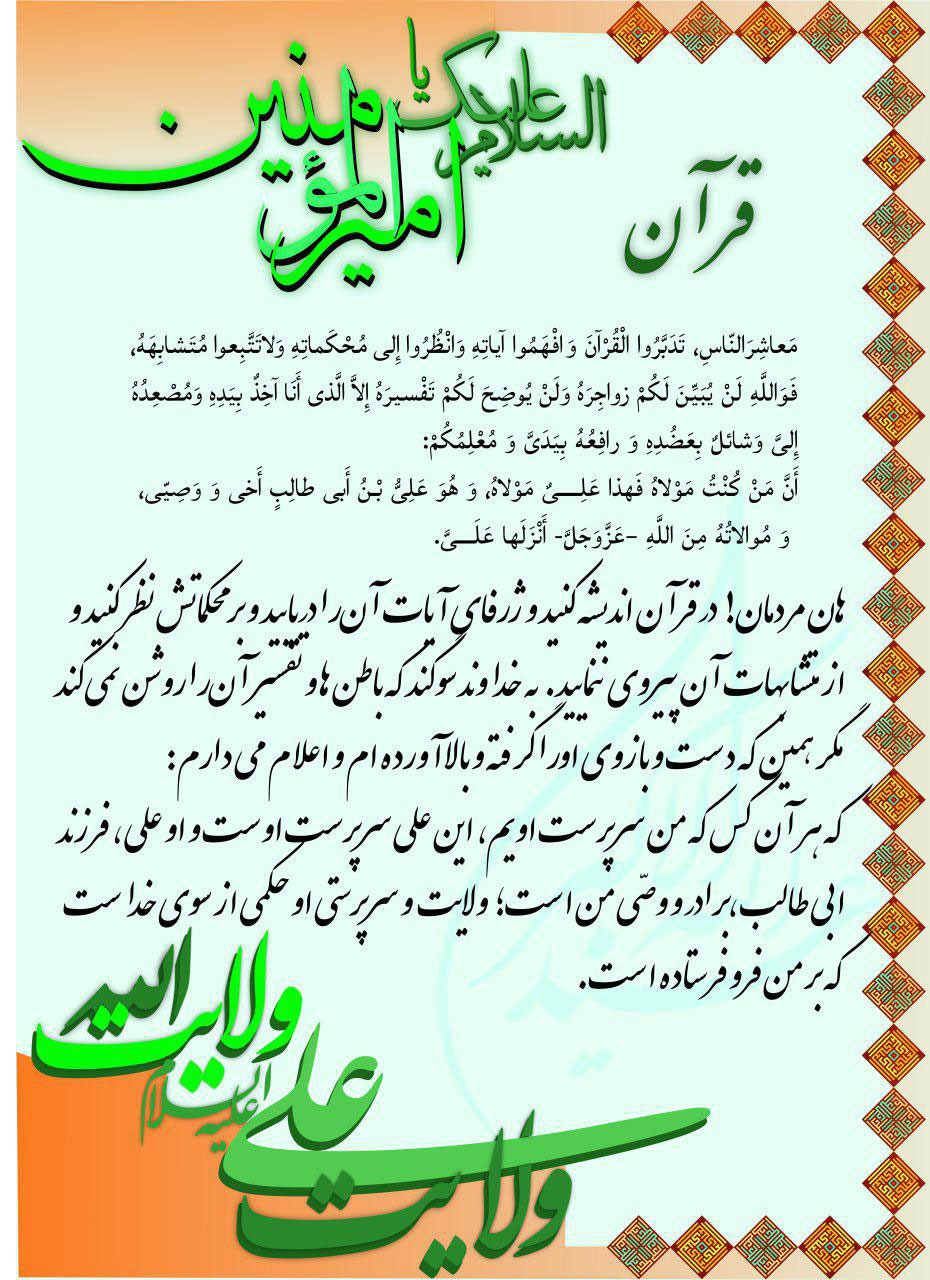 السلام علیک یا
امیرالمؤمنین
قرآن
مَعاشِرَالنّاسِ، تَدَبَّرُوا الْقُرْآنَ وَ افْهَمُوا آیاتِهِ وَانْظُرُوا إِلی مُحْکَماتِهِ وَلاتَتَّبِعوا مُتَشابِهَهُ،
فَوَاللَّهِ لَنْ یُبَیِّنَ لَکُمْ زواجِرَهُ وَلَنْ یُوضِحَ لَکُمْ تَفْسیرَهُ إِلاَّ الَّذی أَنَا آخِذٌ بِیَدِهِ وَمُصْعِدُهُ
إِلیَّ وَشائلٌ بِعَضُدِهِ وَ رافِعُهُ بِیَدَیَّ وَ مُعْلِمُکُمْ:
أَنَّ مَنْ کُنْتُ مَوْلاهُ فَهذا عَلِــیٌ مَوْلاهُ، وَ هُوَ عَلِیُّ بْنُ أَبی طالِبٍ أَخی وَ وَصِیّی،
وَ مُوالاتُهُ مِنَ اللَّهِ –عَزَّوَجَلَّ- أَنْزَلَها عَلَــیَّ.
هان مردمان! در قرآن اندیشه کنید و ژرفای آیات آن را دریابید و بر محکماتش نظر کنید و
از متشابهات آن پیروی ننمایید. به خداوند سوگند که باطن ها و تفسیر آن را روشن نمی کند
مگر همین که دست و بازوی او را گرفته و بالا آورده ام و اعلام می دارم :
که هر آن کس که من سرپرست اویم، این علی سرپرست اوست و او علی، فرزند
ابی طالب، برادر و وصّی من است؛ ولایت و سرپرستی او حکمی از سوی خداست
که بر من فرو فرستاده است.
ولایت الله
ولایت علی
علیه السلام